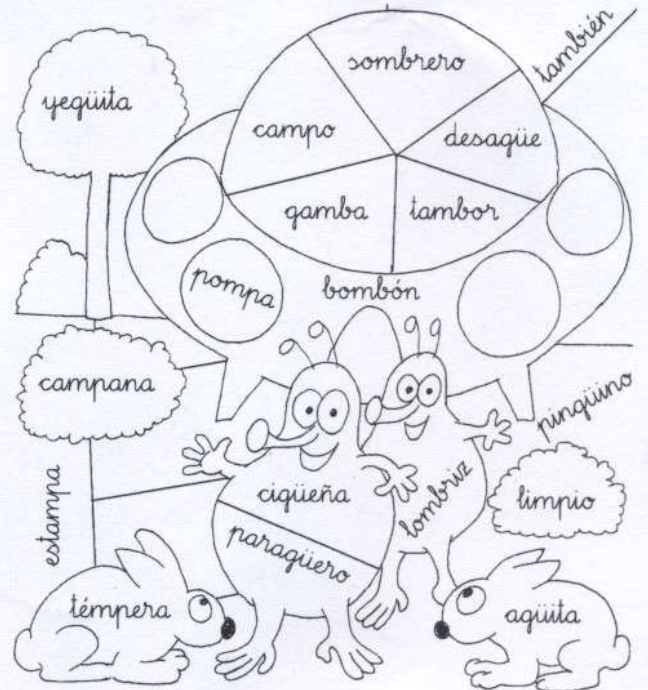 sombrero
también
yegüita
campo
desagüe
gamba
tambor
pompa
bombón
campana
pingüino
estampa
cigüeña
lombriz
limpio
paragüero
témpera
agüita